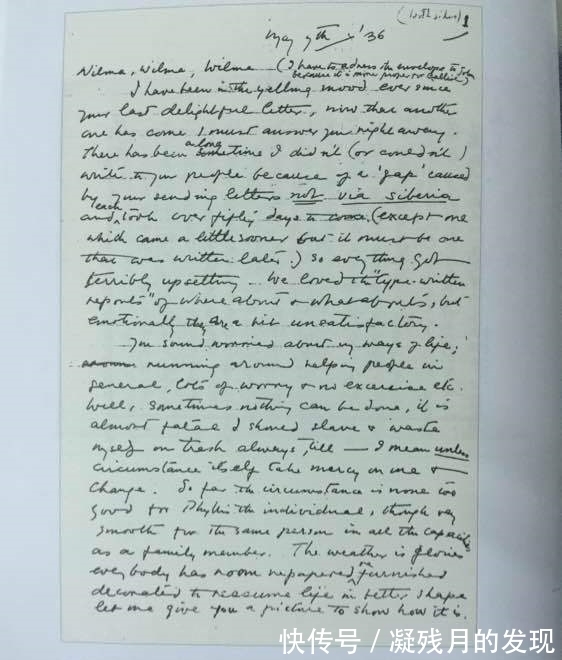 (both sides) 1
May 7th '36
Wilma, Wilma, Wilma (I have to adress the envelope to John
because it is more proper or called)
I have been in the yelling mood ever since
your last delightful letter, now that another
one has come I must answer you right away.
There has been a long sometime I didn't (or couldn't)
write to you people because of a 'gap' caused
by your sending letters not via Siberia
and each took over fifty days to come, (except one
which came a little sooner but it must be one
that was written later.) So everything got
terribly upsetting. We loved the "type-written
reports" of where abouts or what abouts, but
emotionally they are a bit unsatisfactory.
You sound worried about my ways of life,
running around helping people in
general, lots of worry & no excercise etc.
Well, sometimes nothing can be done, it is
almost fatal I should slave & waste
myself on trash always, till — I mean unless
circumstance itself take mercy on me &
change. So far the circumstance is none too
good for Phyllis the individual, though very
smooth for the same person in all the capacity
as a family member. The weather is glorious
everybody has room repapered, re furnished
decorated to reassume life in better shape
let me give you a picture to show how it is.
快传号 / 凝残月的发现